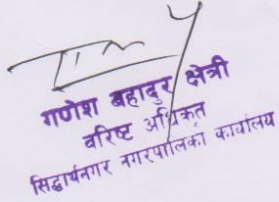 गणेश बहादुर क्षेत्री
वरिष्ट अधिकृत
सिद्धार्थनगर नगरपालिका कार्यालय